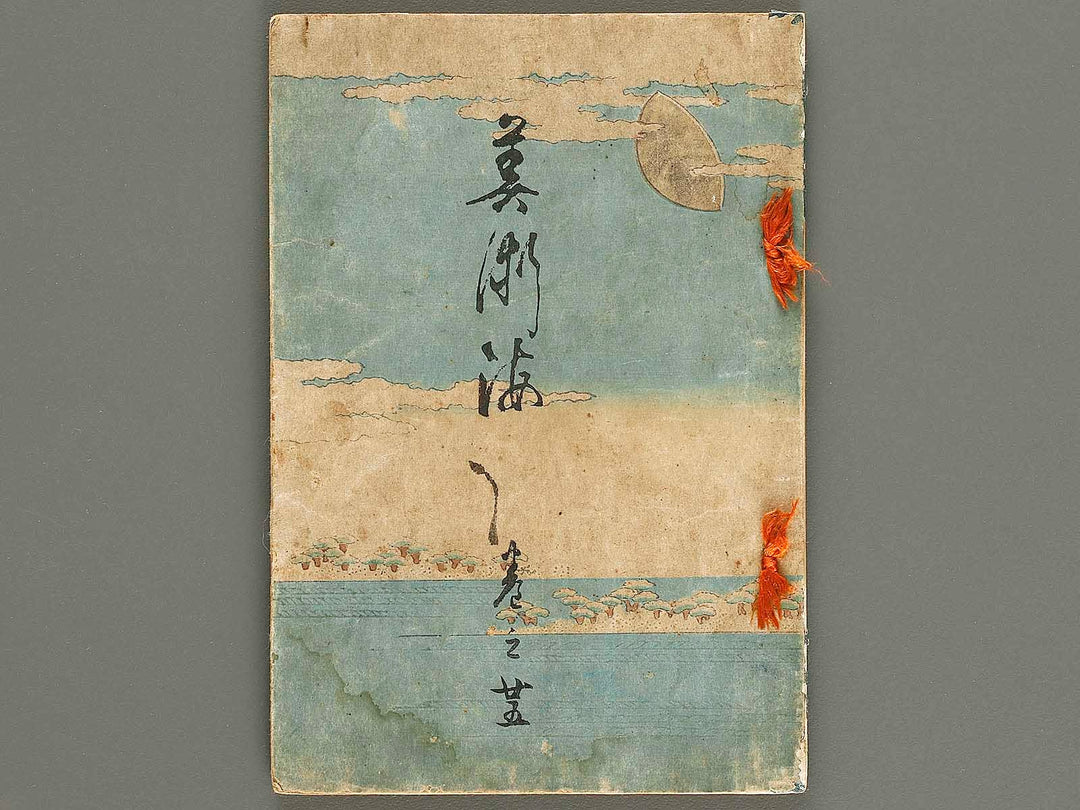 美術海 巻之廿五